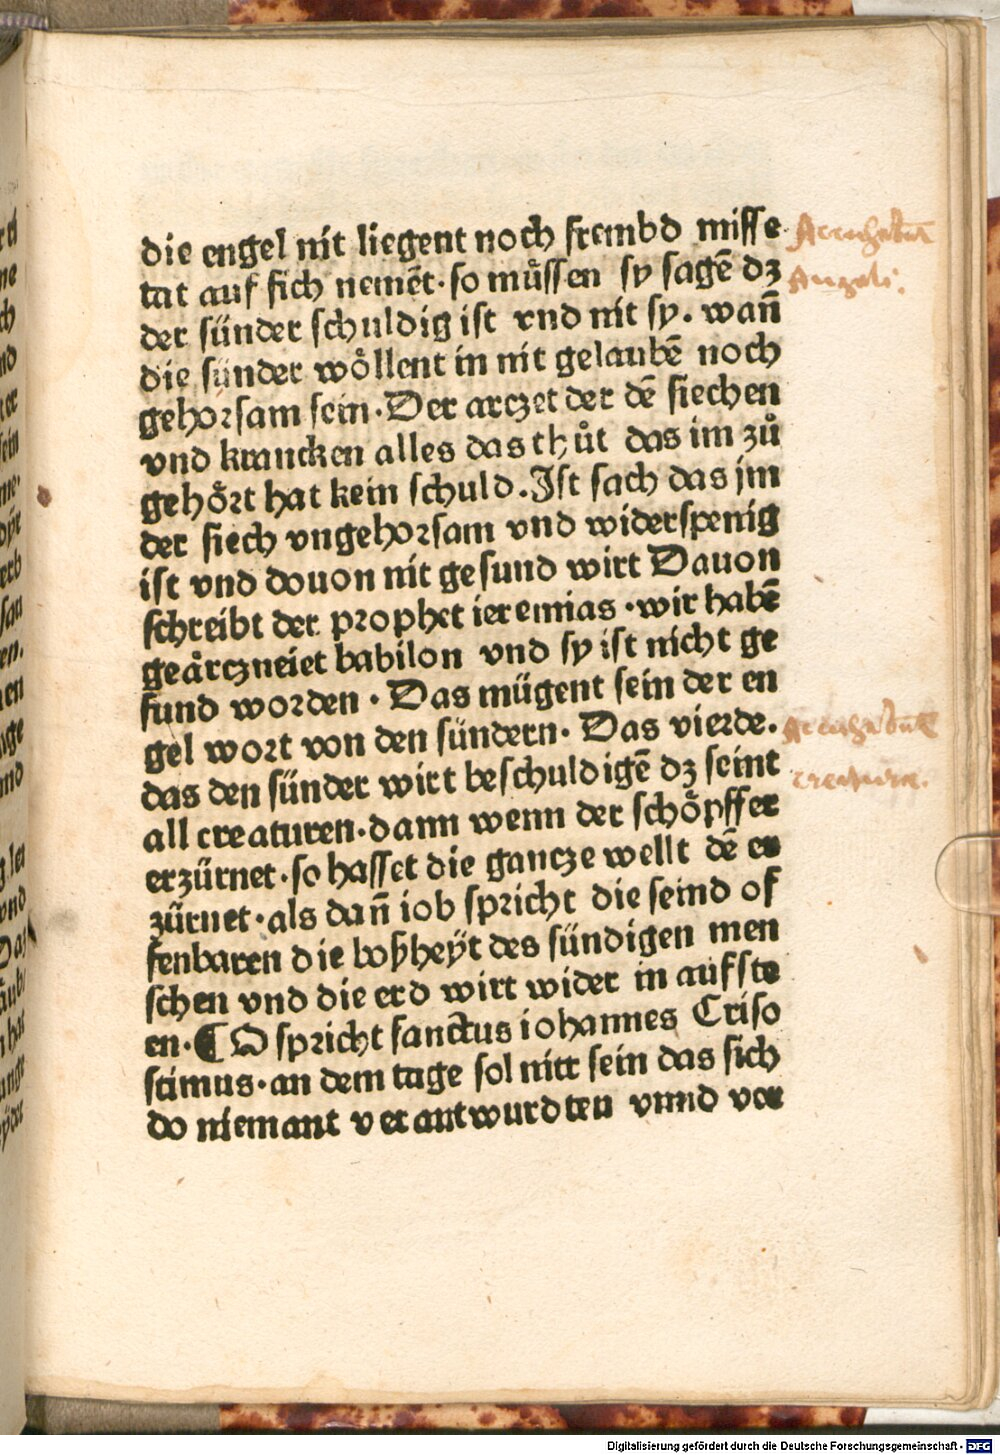 die engel nit liegent noch frembd misse
tat auf sich nemēt· so muͤssen sy sagē dz
der sünder schuldig ist vnd nit sy. wañ
die sünder woͤllent in nit gelaubē noch
gehorsam sein· Der arczet der dē siechen
vnd krancken alles das thuͦt das im zuͦ
gehoͤrt hat kein schuld. Ist sach das jm
der siech vngehorsam vnd widerspenig
ist vnd douon nit gesund wirt Dauon
schreibt der prophet ieremias ·wir habē
geaͤrczneiet babilon vnd sy ist nicht ge
sund worden · Das mügent sein der en
gel wort von den sündern· Das vierde.
das den sünder wirt beschuldigē dz seint
all creaturen· dann wenn der schoͤpffer
erzürnet· so hasset die gancze wellt dē er
zürnet· als dañ iob spricht die seind of
fenbaren die boßheÿt des sündigen men
schen vnd die erd wirt wider in aufste
en· ¶ O spricht sanctus iohannes Criso
stimus· an dem tage sol nitt sein das sich
do niemant verantwurdten vnnd vor
Angeli:
creature.
Digitalisierung gefördert durch die Deutsche Forschungsgemeinschaft · DFG